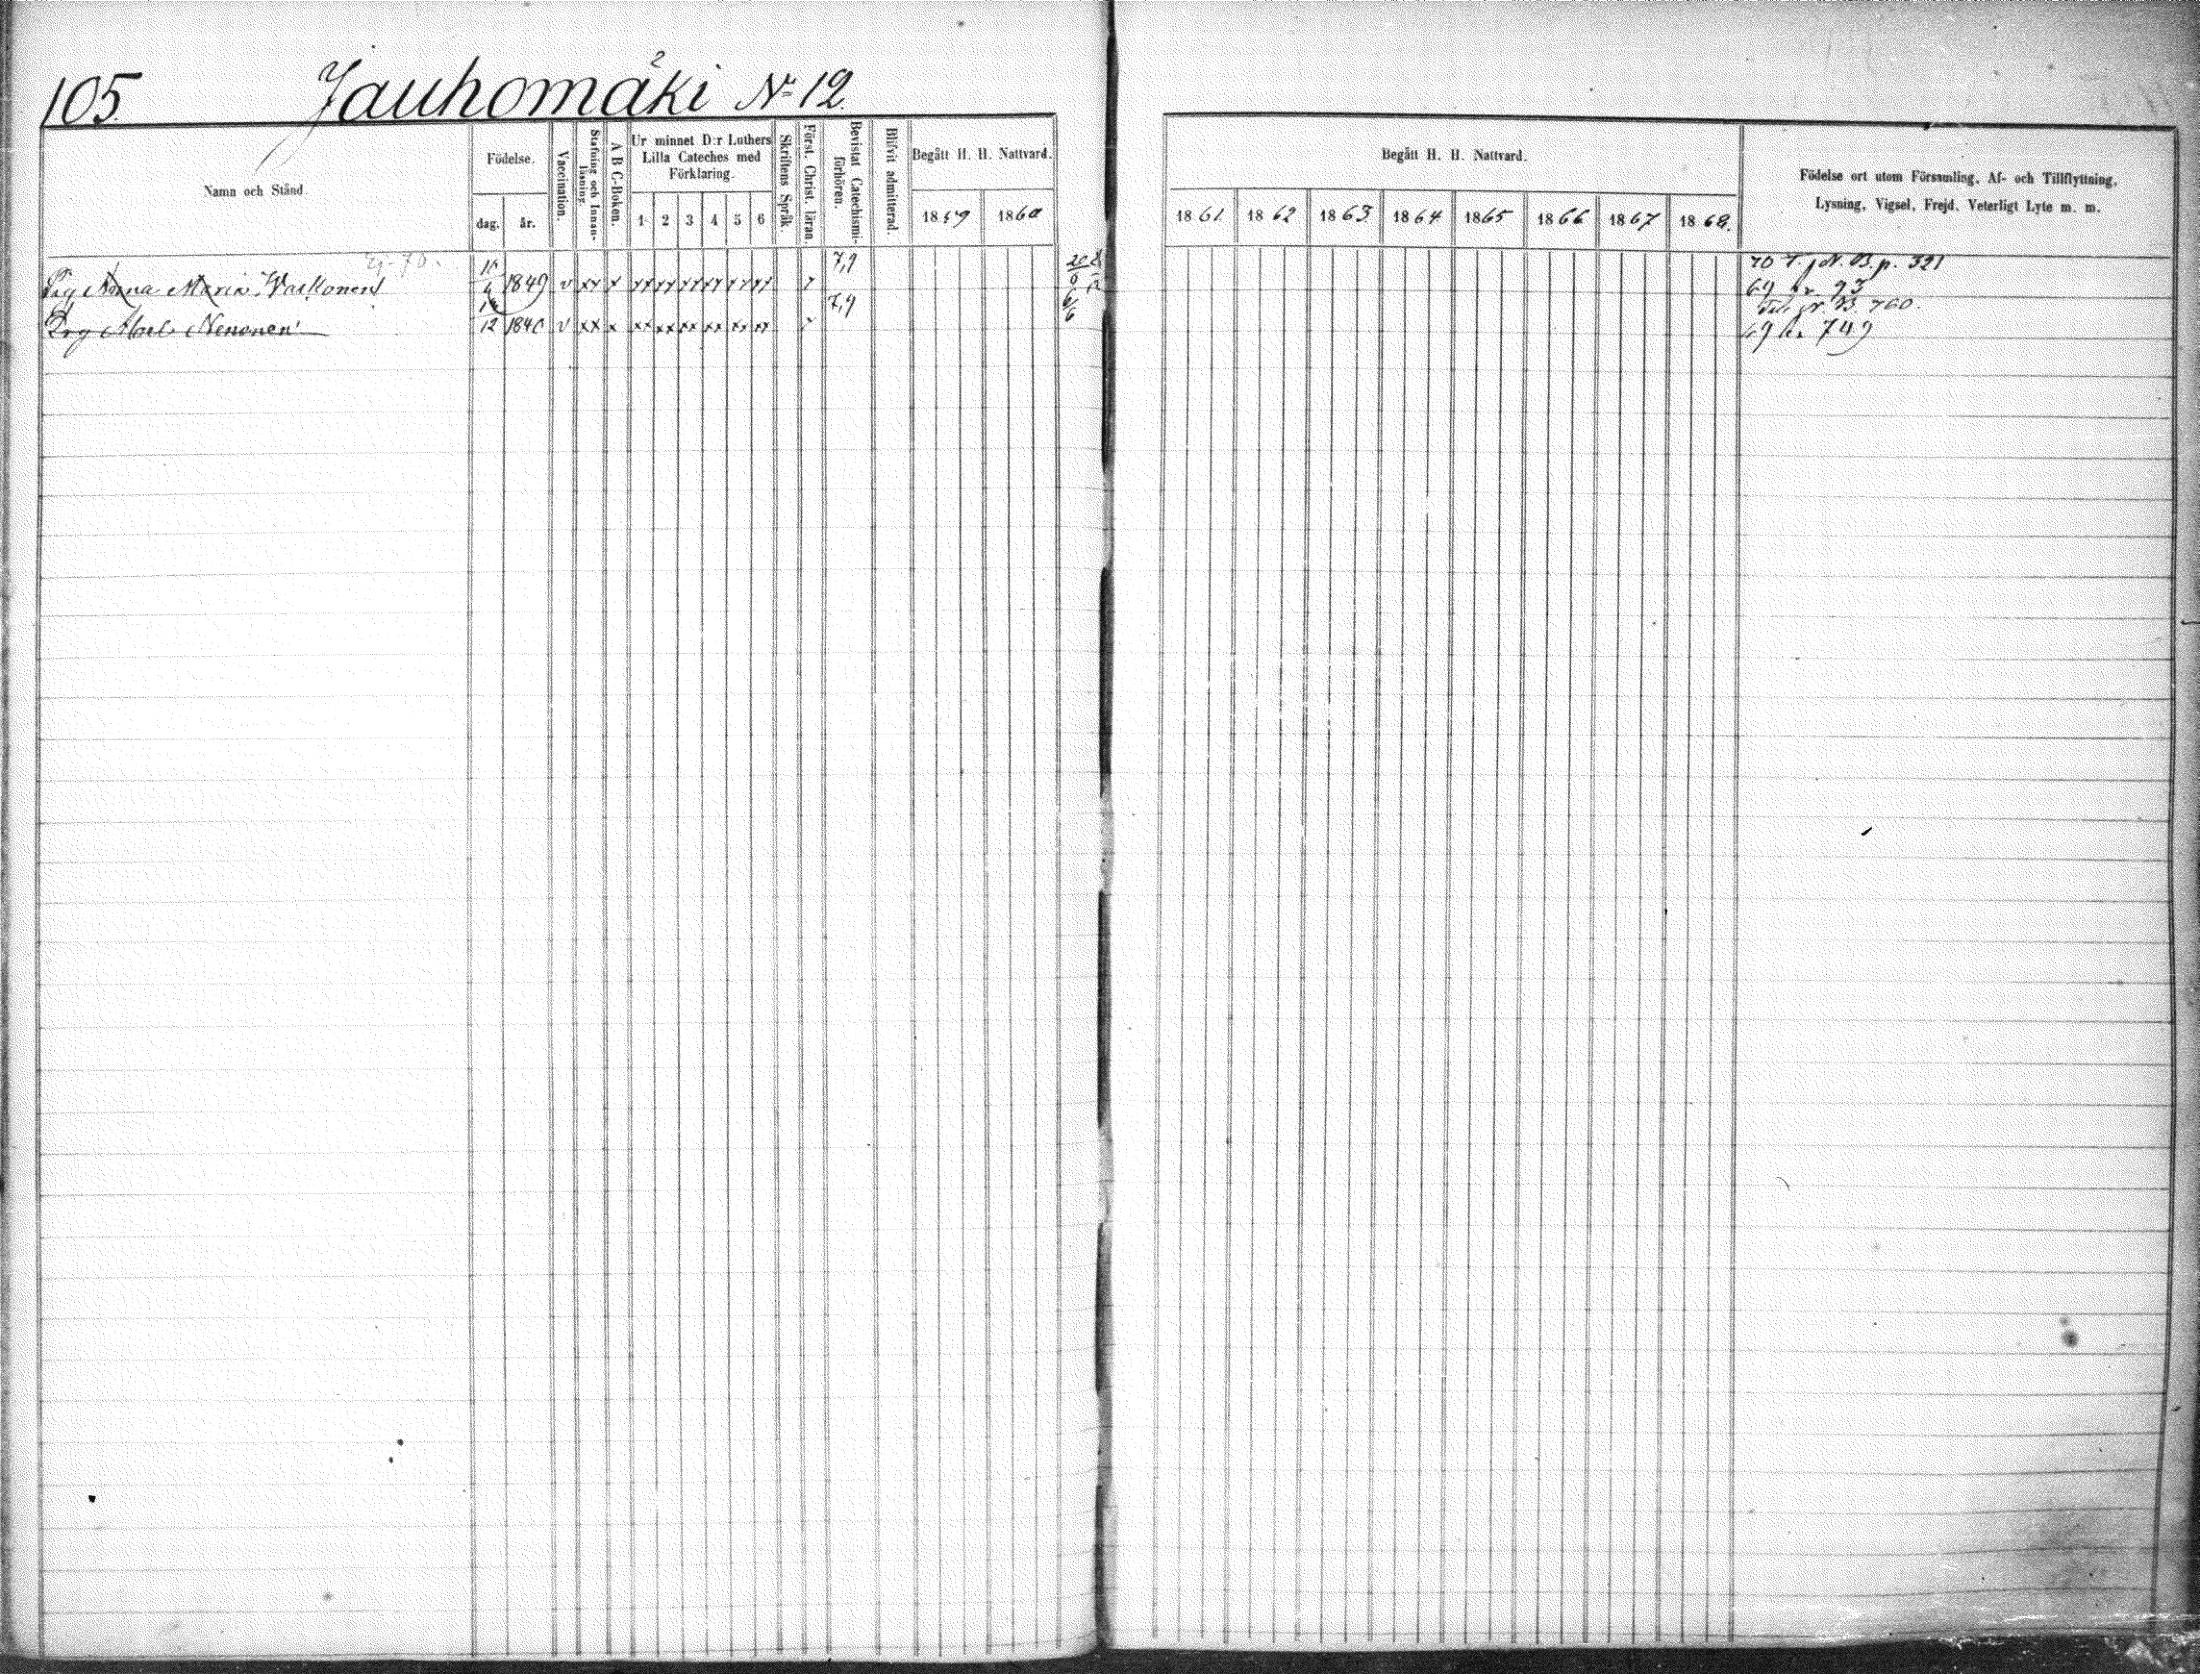 105. Jauhomäki № 12.
Namn och Stånd.
Födelse.
dag.
år.
Vaccination.
Stafning och Innanläsning.
A B C-Boken.
Ur minnet D:r Luthers Lilla Cateches med Förklaring.
1 2 3 4 5 6
Skriftens Språk.
Först. Christ. läran.
Bevistat Catechismiförhören.
Blifvit admitterad.
Begått H. H. Nattvard.
1859 1860
Begått H. H. Nattvard.
1861 1862 1863 1864 1865 1866 1867 1868.
Födelse ort utom Församling, Af- och Tillflyttning,
Lysning, Vigsel, Frejd, Veterligt Lyte m. m.
Pig Anna Maria 1849 v xx x xx xx xx xx xx xx x 7,9
N. B. p. 321
69 93
Drg Nenonen 12 1840 v xx x xx xx xx xx xx xx x 7,9 6/6
N. B. 760.
69 749